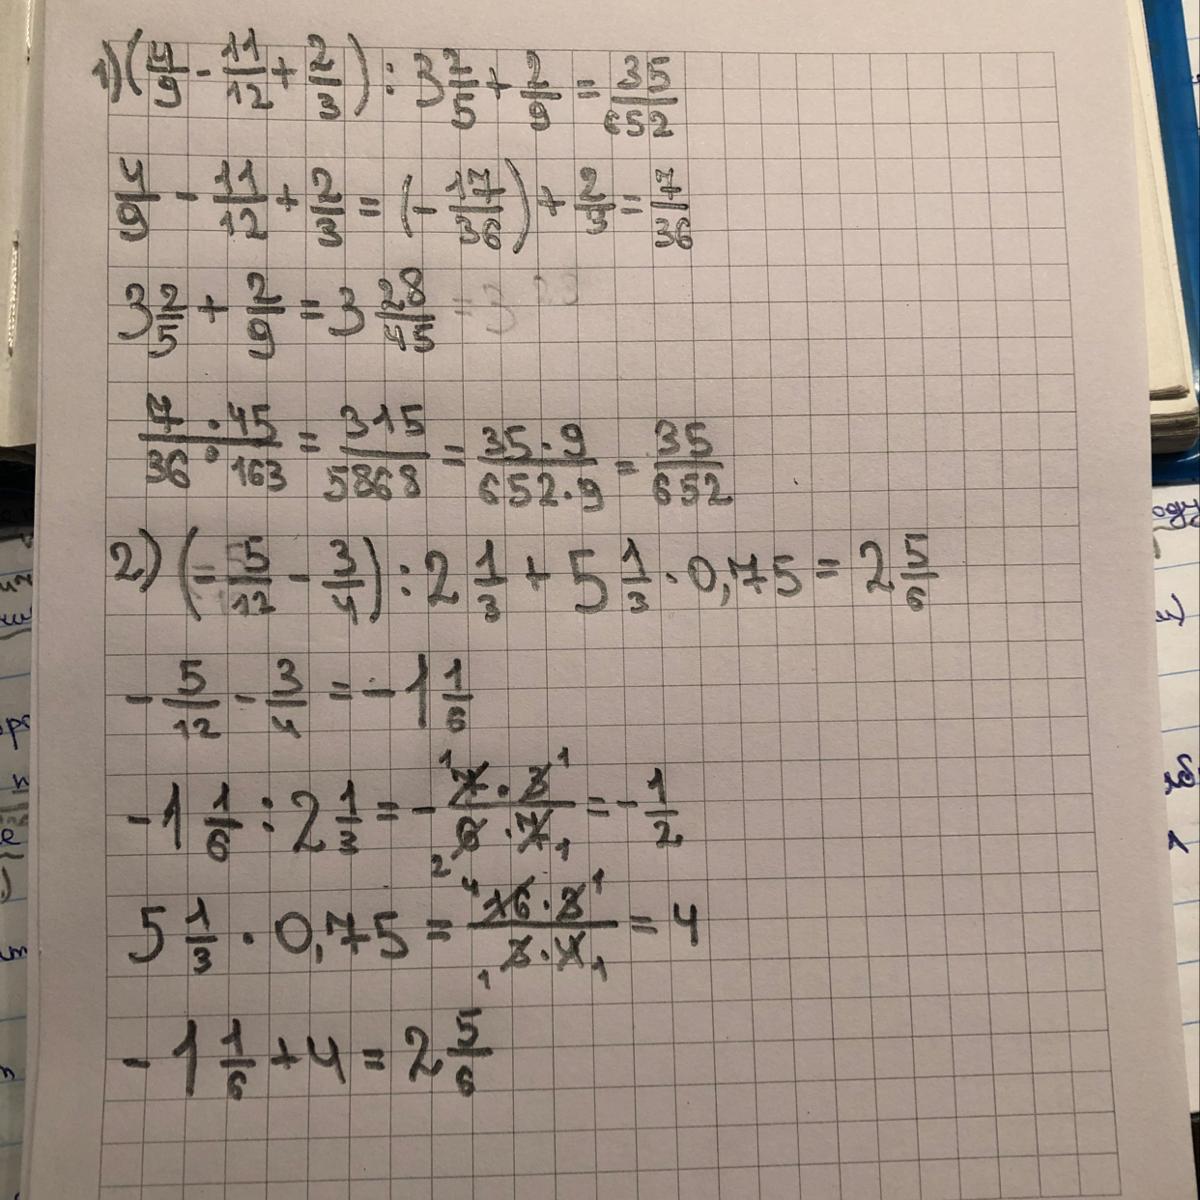 1) (4/9 - 11/12 + 2/3) : 3 2/5 + 2/9 = 35/652
4/9 - 11/12 + 2/3 = (- 17/36) + 2/3 = 7/36
3 2/5 + 2/9 = 3 28/45
7/36 · 45/163 = 315/5868 = 35·9/652·9 = 35/652
2) (- 5/12 - 3/4) : 2 1/3 + 5 1/3 · 0,75 = 2 5/6
- 5/12 - 3/4 = - 1 1/6
- 1 1/6 : 2 1/3 = - 7·3/6·7 = - 1/2
5 1/3 · 0,75 = 16·3/3·4 = 4
- 1 1/6 + 4 = 2 5/6